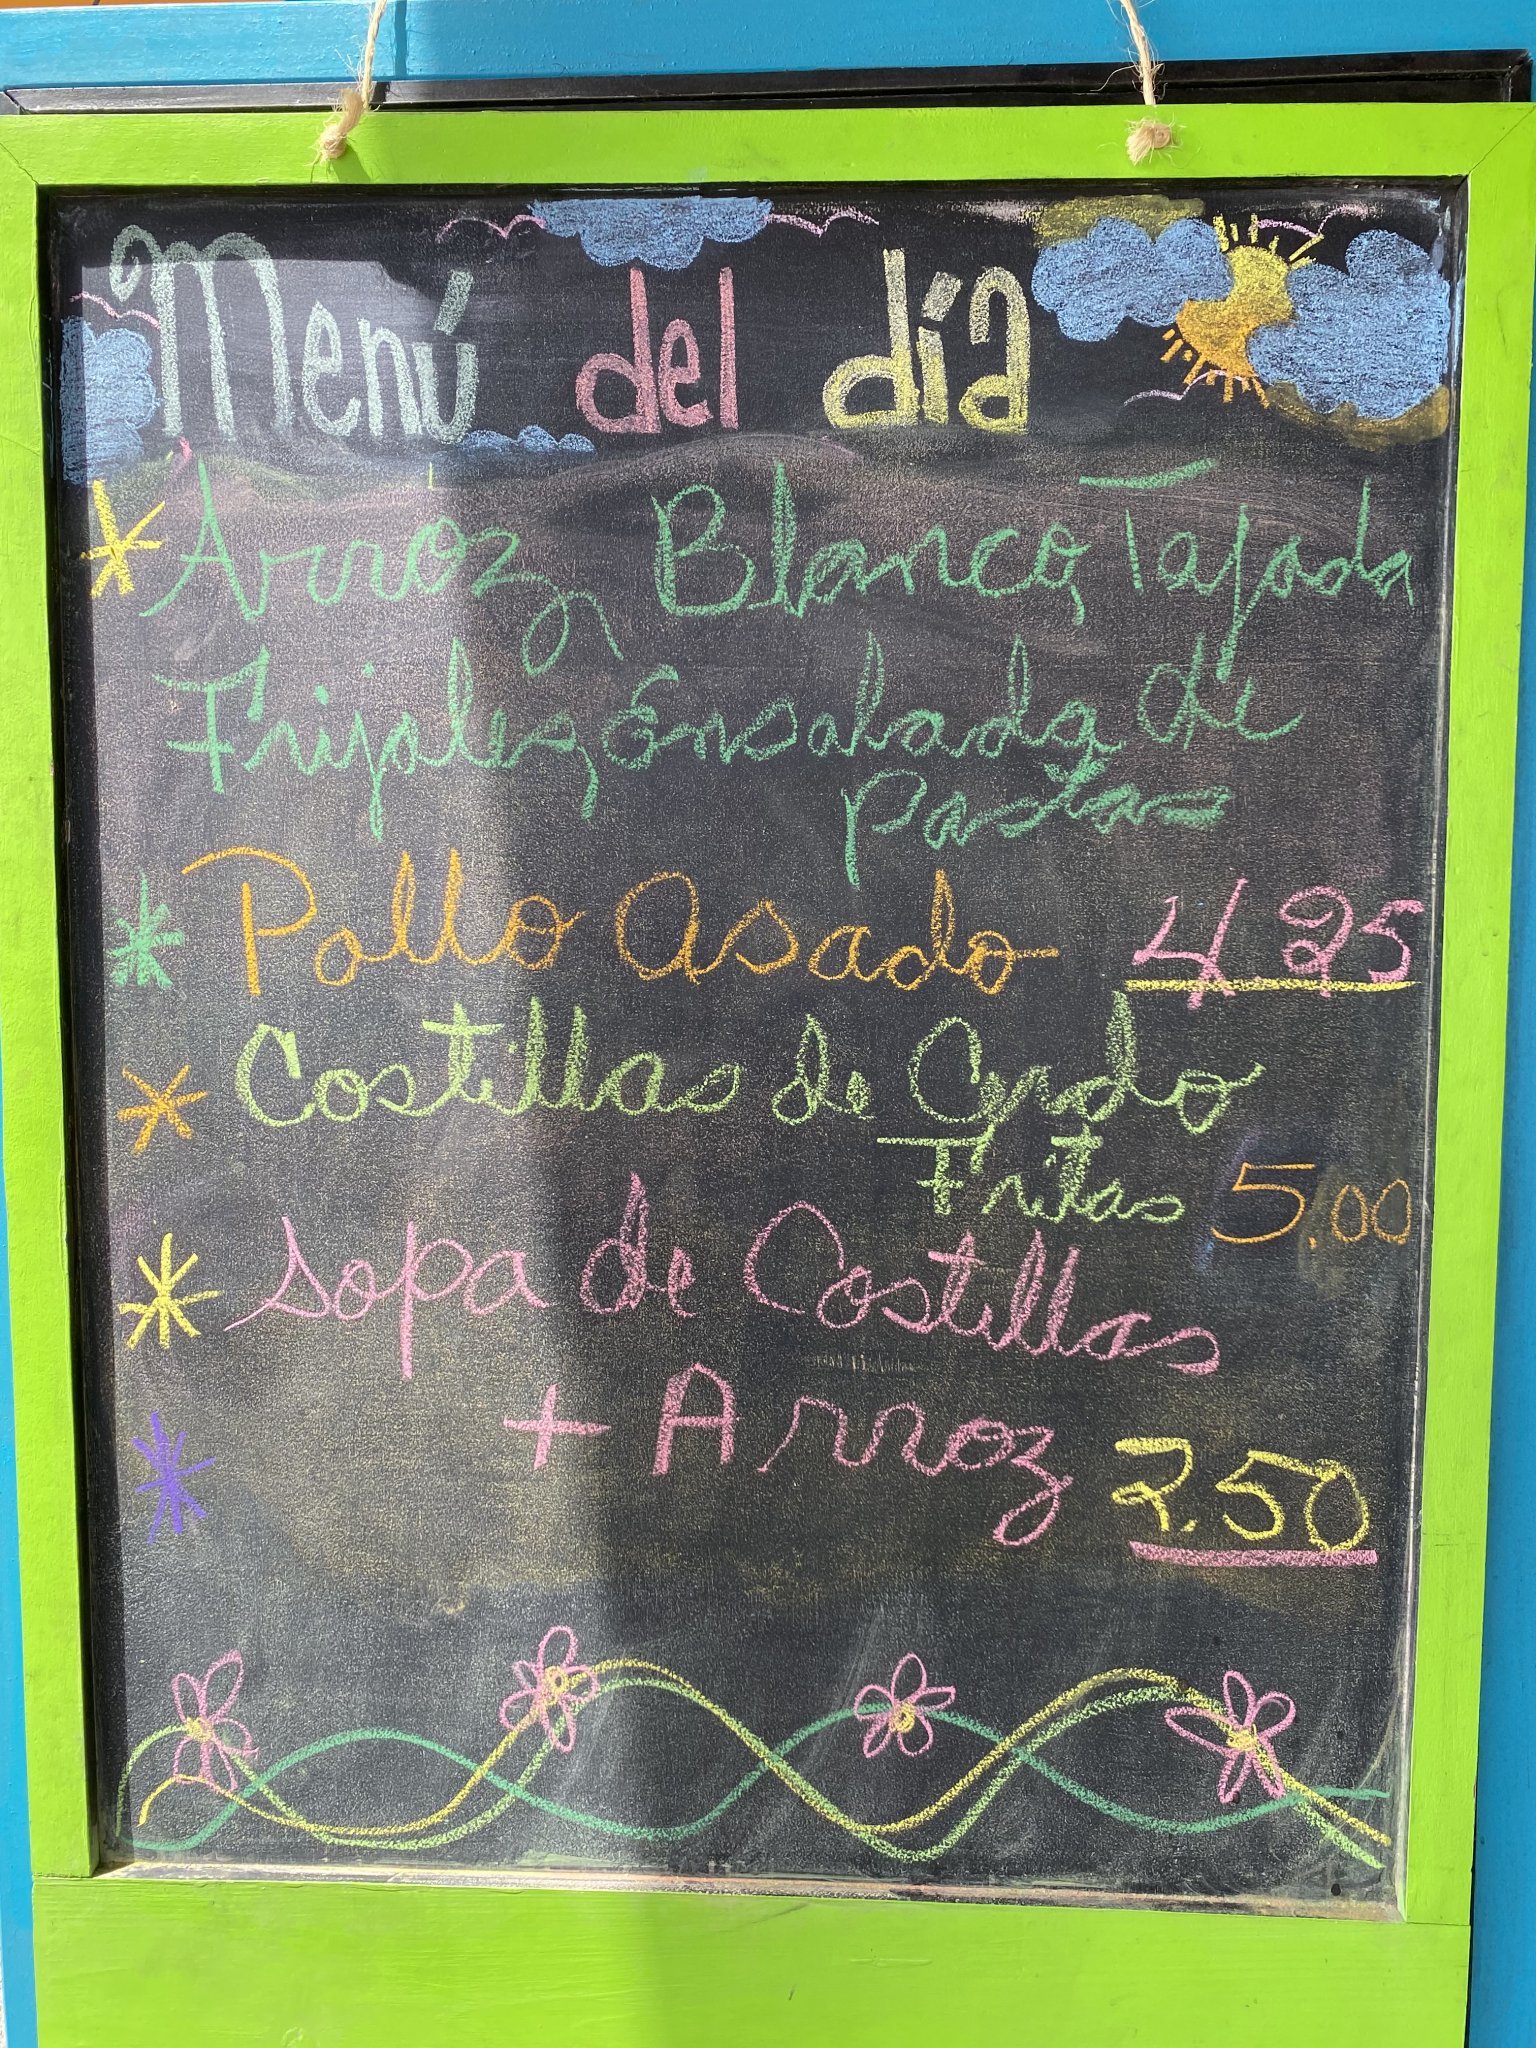 Menú del día
Arroz Blanco, Tajada
Frijoles, Ensalada de
Pasta
Pollo Asado 4.25
Costillas de Cerdo
Fritas 5.00
Sopa de Costillas
+ Arroz 2.50